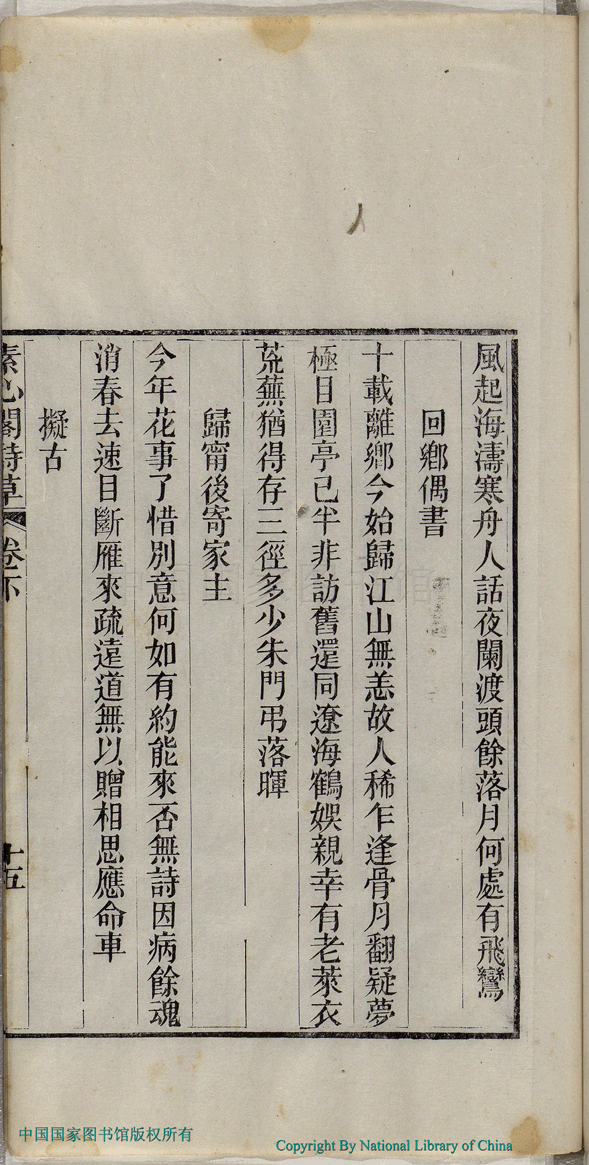 風起海濤寒舟人話夜闌渡頭餘落月何處有飛鸞
回鄉偶書
十載離鄉今始歸江山無恙故人稀乍逢骨月翻疑夢
極目園亭已半非訪舊還同遼海鶴娛親幸有老萊衣
荒蕪猶得存三徑多少朱門弔落暉
歸甯後寄家主
今年花事了惜別意何如有約能來否無詩因病餘魂
消春去速目斷雁來疏遠道無以贈相思應命車
擬古
素心閣詩草 卷下 十五
中国国家图书馆版权所有
Copyright By National Library of China